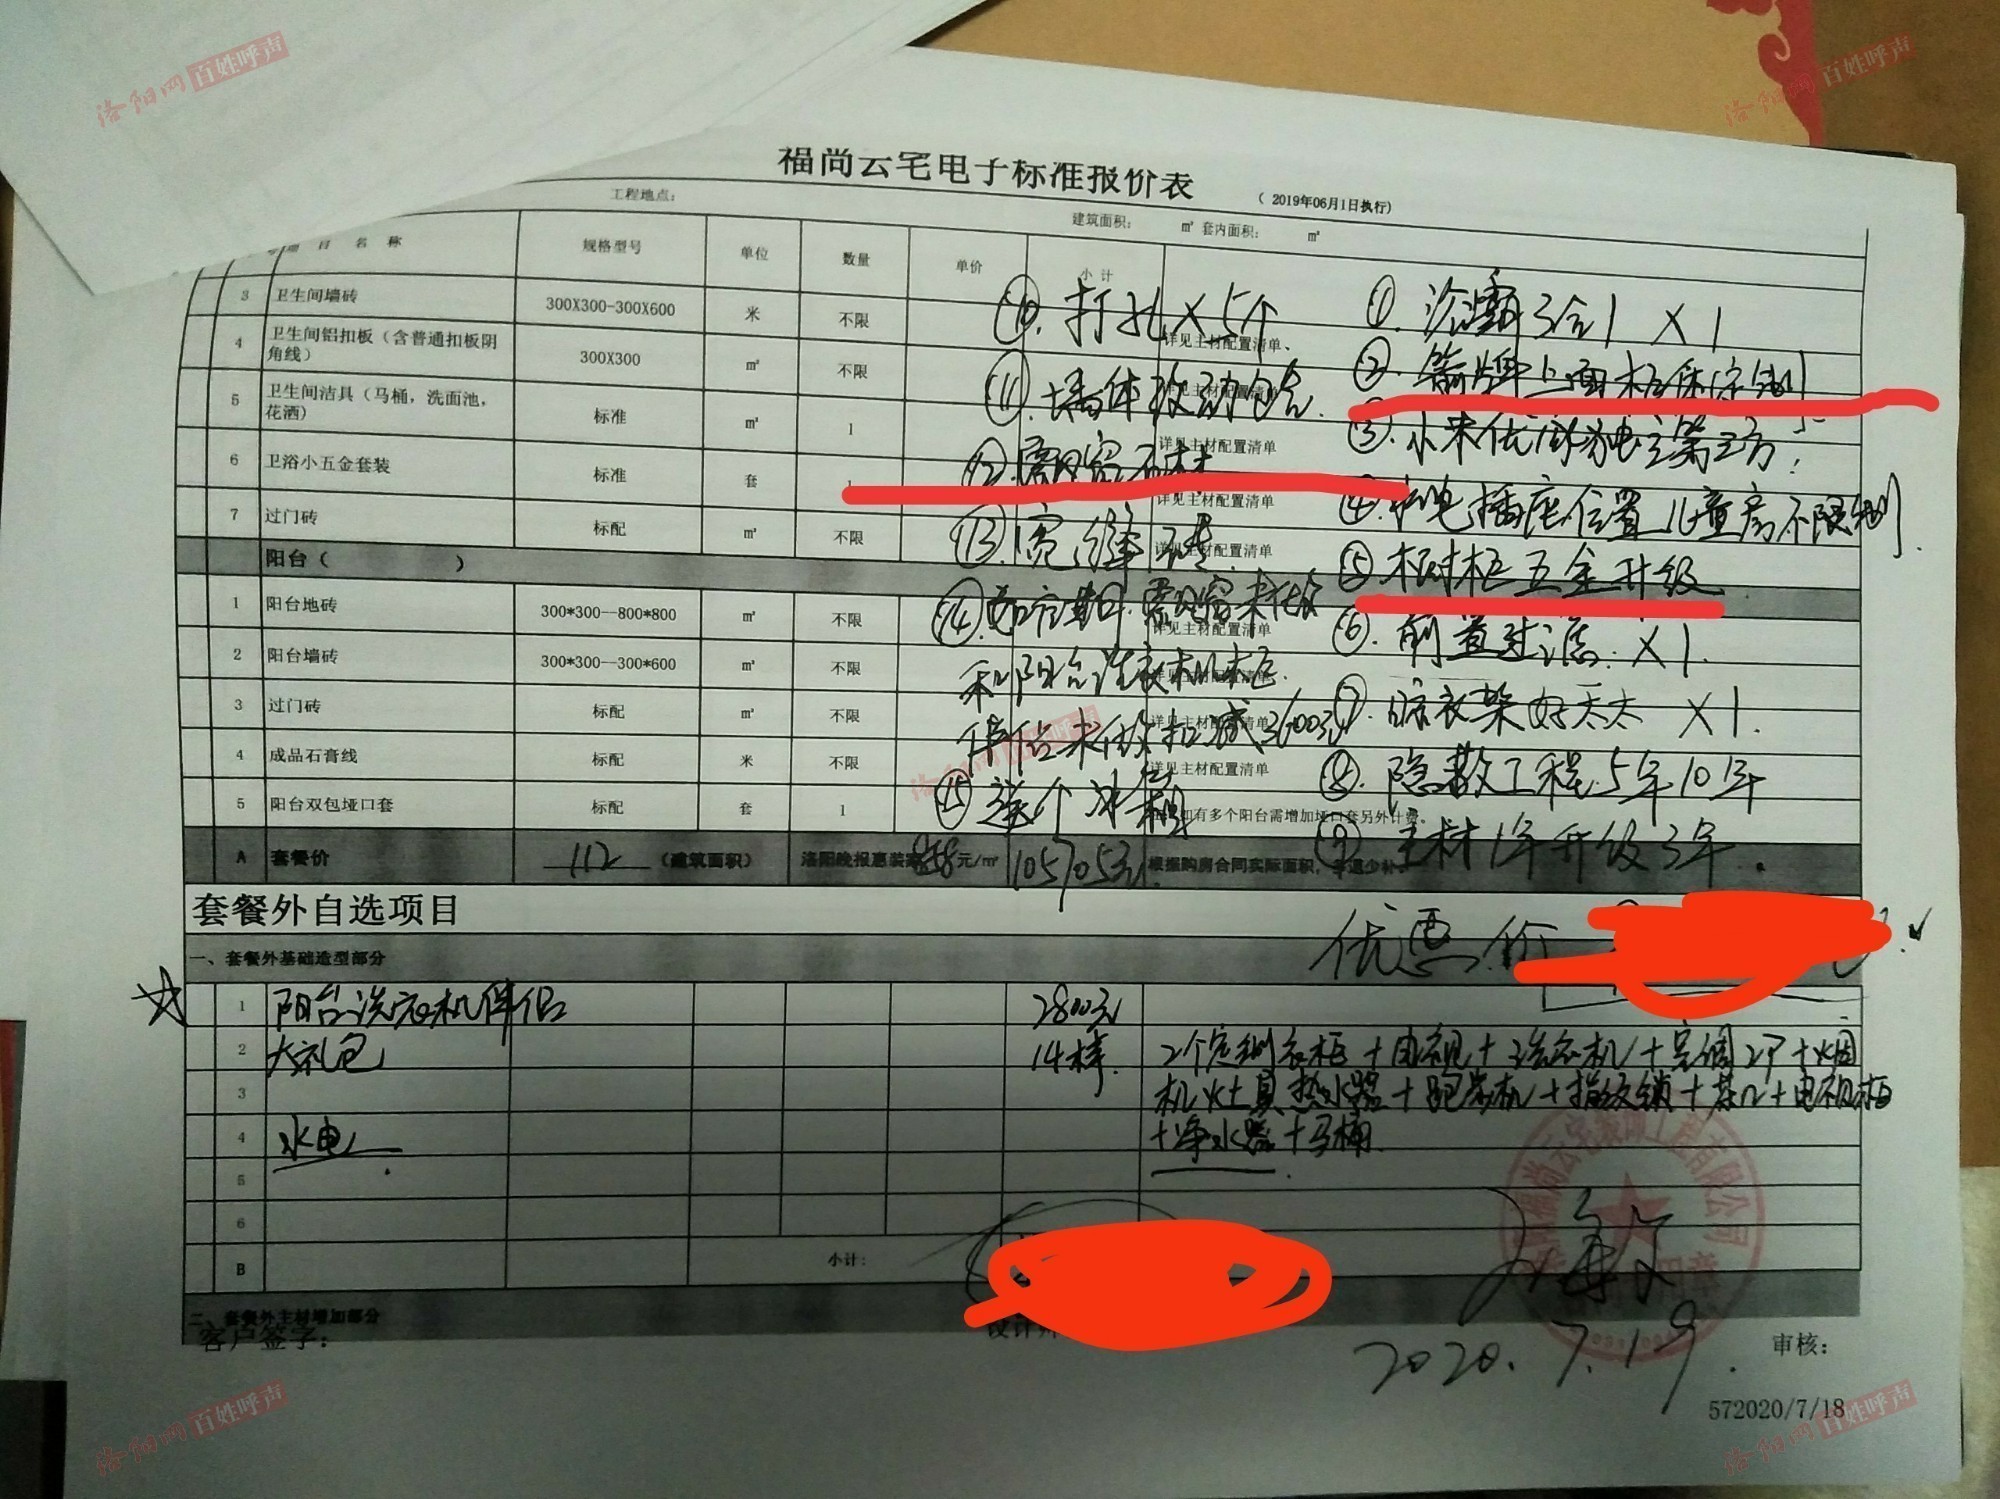 洛阳网 百姓呼声
洛阳网 百姓呼声
福尚云宅电子标准报价表
( 2019年06月1日执行)
工程地点:
建筑面积: ㎡ 套内面积: ㎡
项 目 名 称 规格型号 单位 数量 单价 小 计
3 卫生间墙砖 300X300-300X600 米 不限
4 卫生间铝扣板（含普通扣板阴角线） 300X300 ㎡ 不限 详见主材配置清单、
5 卫生间洁具（马桶，洗面池，花洒） 标准 ㎡ 1 详见主材配置清单
6 卫浴小五金套装 标准 套 1 详见主材配置清单
7 过门砖 标配 ㎡ 不限 详见主材配置清单
阳台（ ）
1 阳台地砖 300*300--800*800 ㎡ 不限 详见主材配置清单
2 阳台墙砖 300*300--300*600 ㎡ 不限 详见主材配置清单
3 过门砖 标配 ㎡ 不限 详见主材配置清单
4 成品石膏线 标配 米 不限 详见主材配置清单
5 阳台双包垭口套 标配 套 1 如有多个阳台需增加垭口套另外计费。
A 套餐价 112 （建筑面积） 洛阳晚报惠装 958元/㎡ 根据购房合同实际面积，多退少补
① 浴霸3合1 X 1
② 箭牌上面柜体定制
④ 插座位置 儿童房不限制.
⑤ 橱柜五金升级
⑥. 前置过滤. X1.
⑦ 晾衣架好太太 X1.
⑧ 隐蔽工程5年10年
⑨ 主材1年升级3年.
⑩. 打孔X5个
⑪. 墙体改动包含.
⑫ 飘窗石材
⑬. 宽缝砖.
和阳台洗衣机柜
⑮ 送个冰箱
套餐外自选项目
优惠价
一、套餐外基础造型部分
1 阳台洗衣机伴侣 2800元
2 大礼包 14样. 2个定制衣柜+电视+洗衣机+空调2个+烟
3 机灶具热水器+跑步机+指纹锁+茶几+电视柜
4 水电 +净水器+马桶.
5
6
B 小计:
二、套餐外主材增加部分
客户签字:
设计师
2020.7.19
审核:
572020/7/18
洛阳网 百姓呼声
洛阳网 百姓呼声
洛阳网 百姓呼声